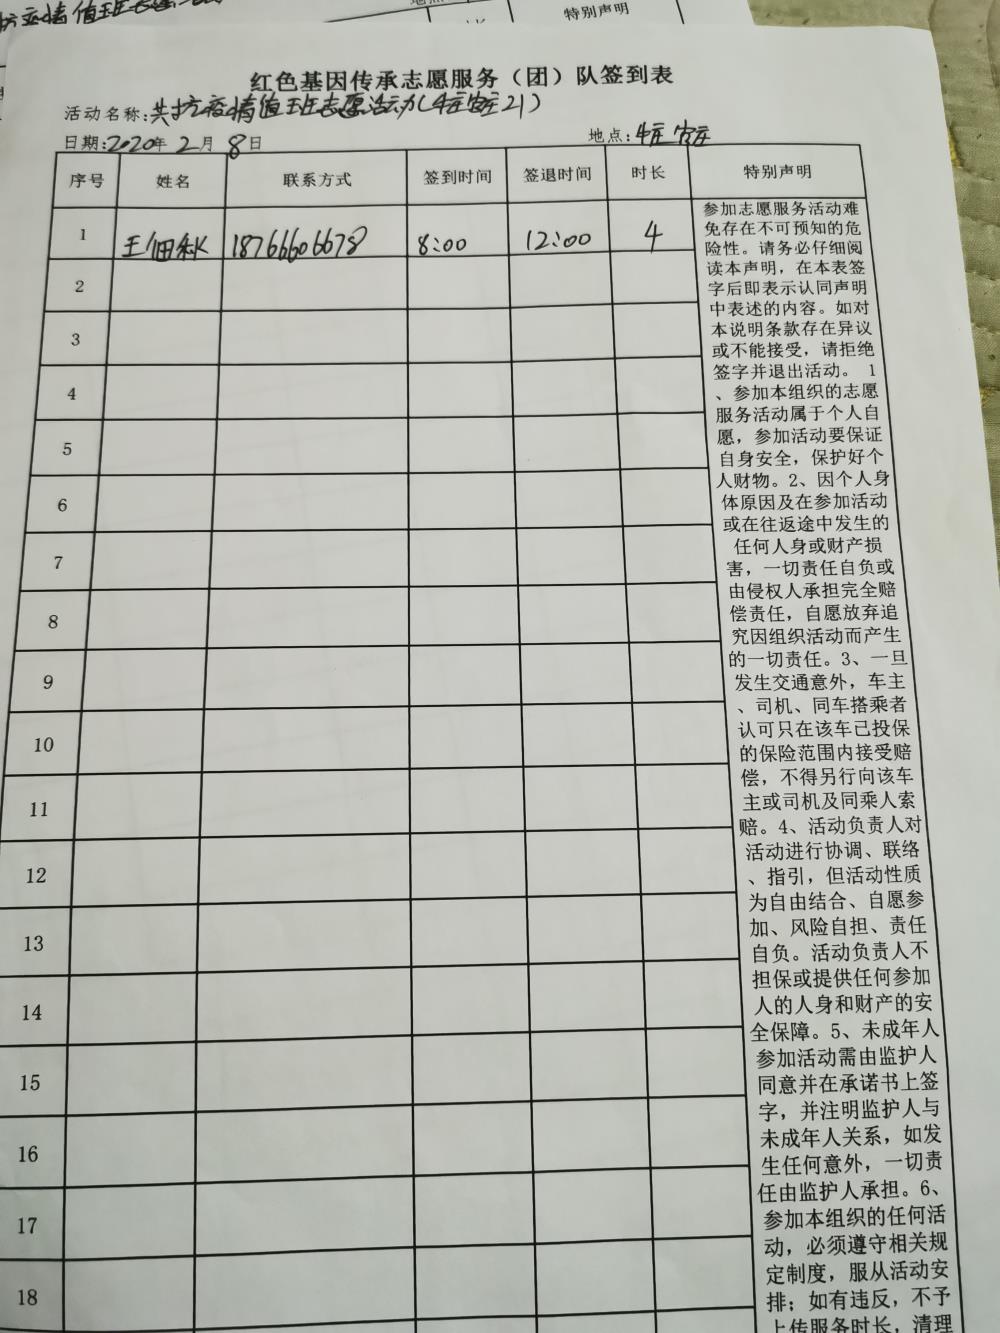 特别声明
红色基因传承志愿服务（团）队签到表
活动名称:共抗疫情值班志愿活动
日期:2020年2月8日
地点:
序号 姓名 联系方式 签到时间 签退时间 时长 特别声明
1 18766606678 8:00 12:00 4
2
3
4
5
6
7
8
9
10
11
12
13
14
15
16
17
18
参加志愿服务活动难
免存在不可预知的危
险性。请务必仔细阅
读本声明，在本表签
字后即表示认同声明
中表述的内容。如对
本说明条款存在异议
或不能接受，请拒绝
签字并退出活动。 1
、参加本组织的志愿
服务活动属于个人自
愿，参加活动要保证
自身安全，保护好个
人财物。2、因个人身
体原因及在参加活动
或在往返途中发生的
任何人身或财产损
害，一切责任自负或
由侵权人承担完全赔
偿责任，自愿放弃追
究因组织活动而产生
的一切责任。3、一旦
发生交通意外，车主
、司机、同车搭乘者
认可只在该车已投保
的保险范围内接受赔
偿，不得另行向该车
主或司机及同乘人索
赔。4、活动负责人对
活动进行协调、联络
、指引，但活动性质
为自由结合、自愿参
加、风险自担、责任
自负。活动负责人不
担保或提供任何参加
人的人身和财产的安
全保障。5、未成年人
参加活动需由监护人
同意并在承诺书上签
字，并注明监护人与
未成年人关系，如发
生任何意外，一切责
任由监护人承担。6、
参加本组织的任何活
动，必须遵守相关规
定制度，服从活动安
排；如有违反，不予
上传服务时长，清理